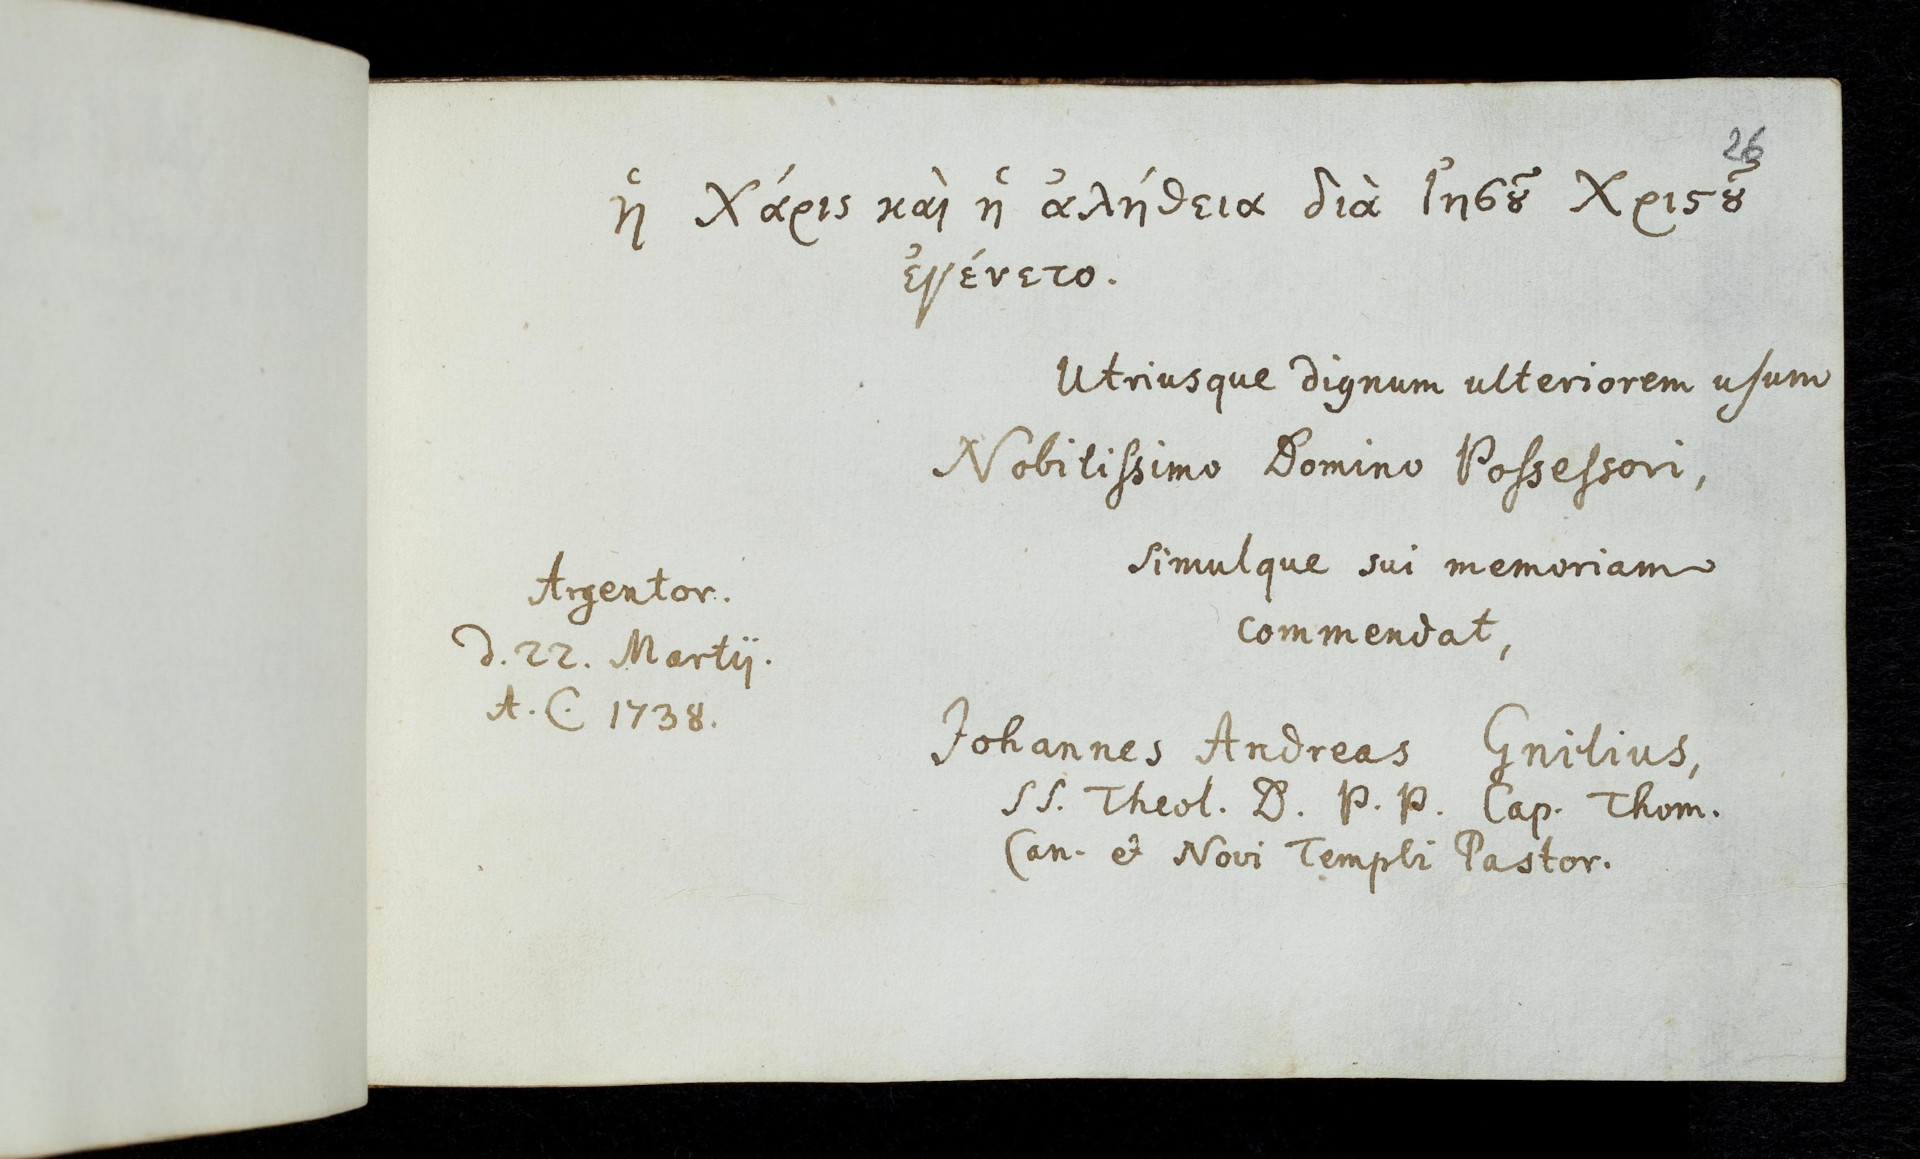 26
ἡ Χάρις καὶ ἡ ἀλήθεια διὰ Ἰησȣ͂ Χριϛȣ͂
ἐγένετο.
Utriusque dignum ulteriorem uſum
Nobiliſsimo Domino Poſseſsori,
simulque sui memoriam
commendat,
Argentor.
d. 22. Martij.
A. C. 1738.
Johannes Andreas Gnilius,
SS. Theol. D. P. P. Cap. Thom.
Can. et Novi Templi Pastor.